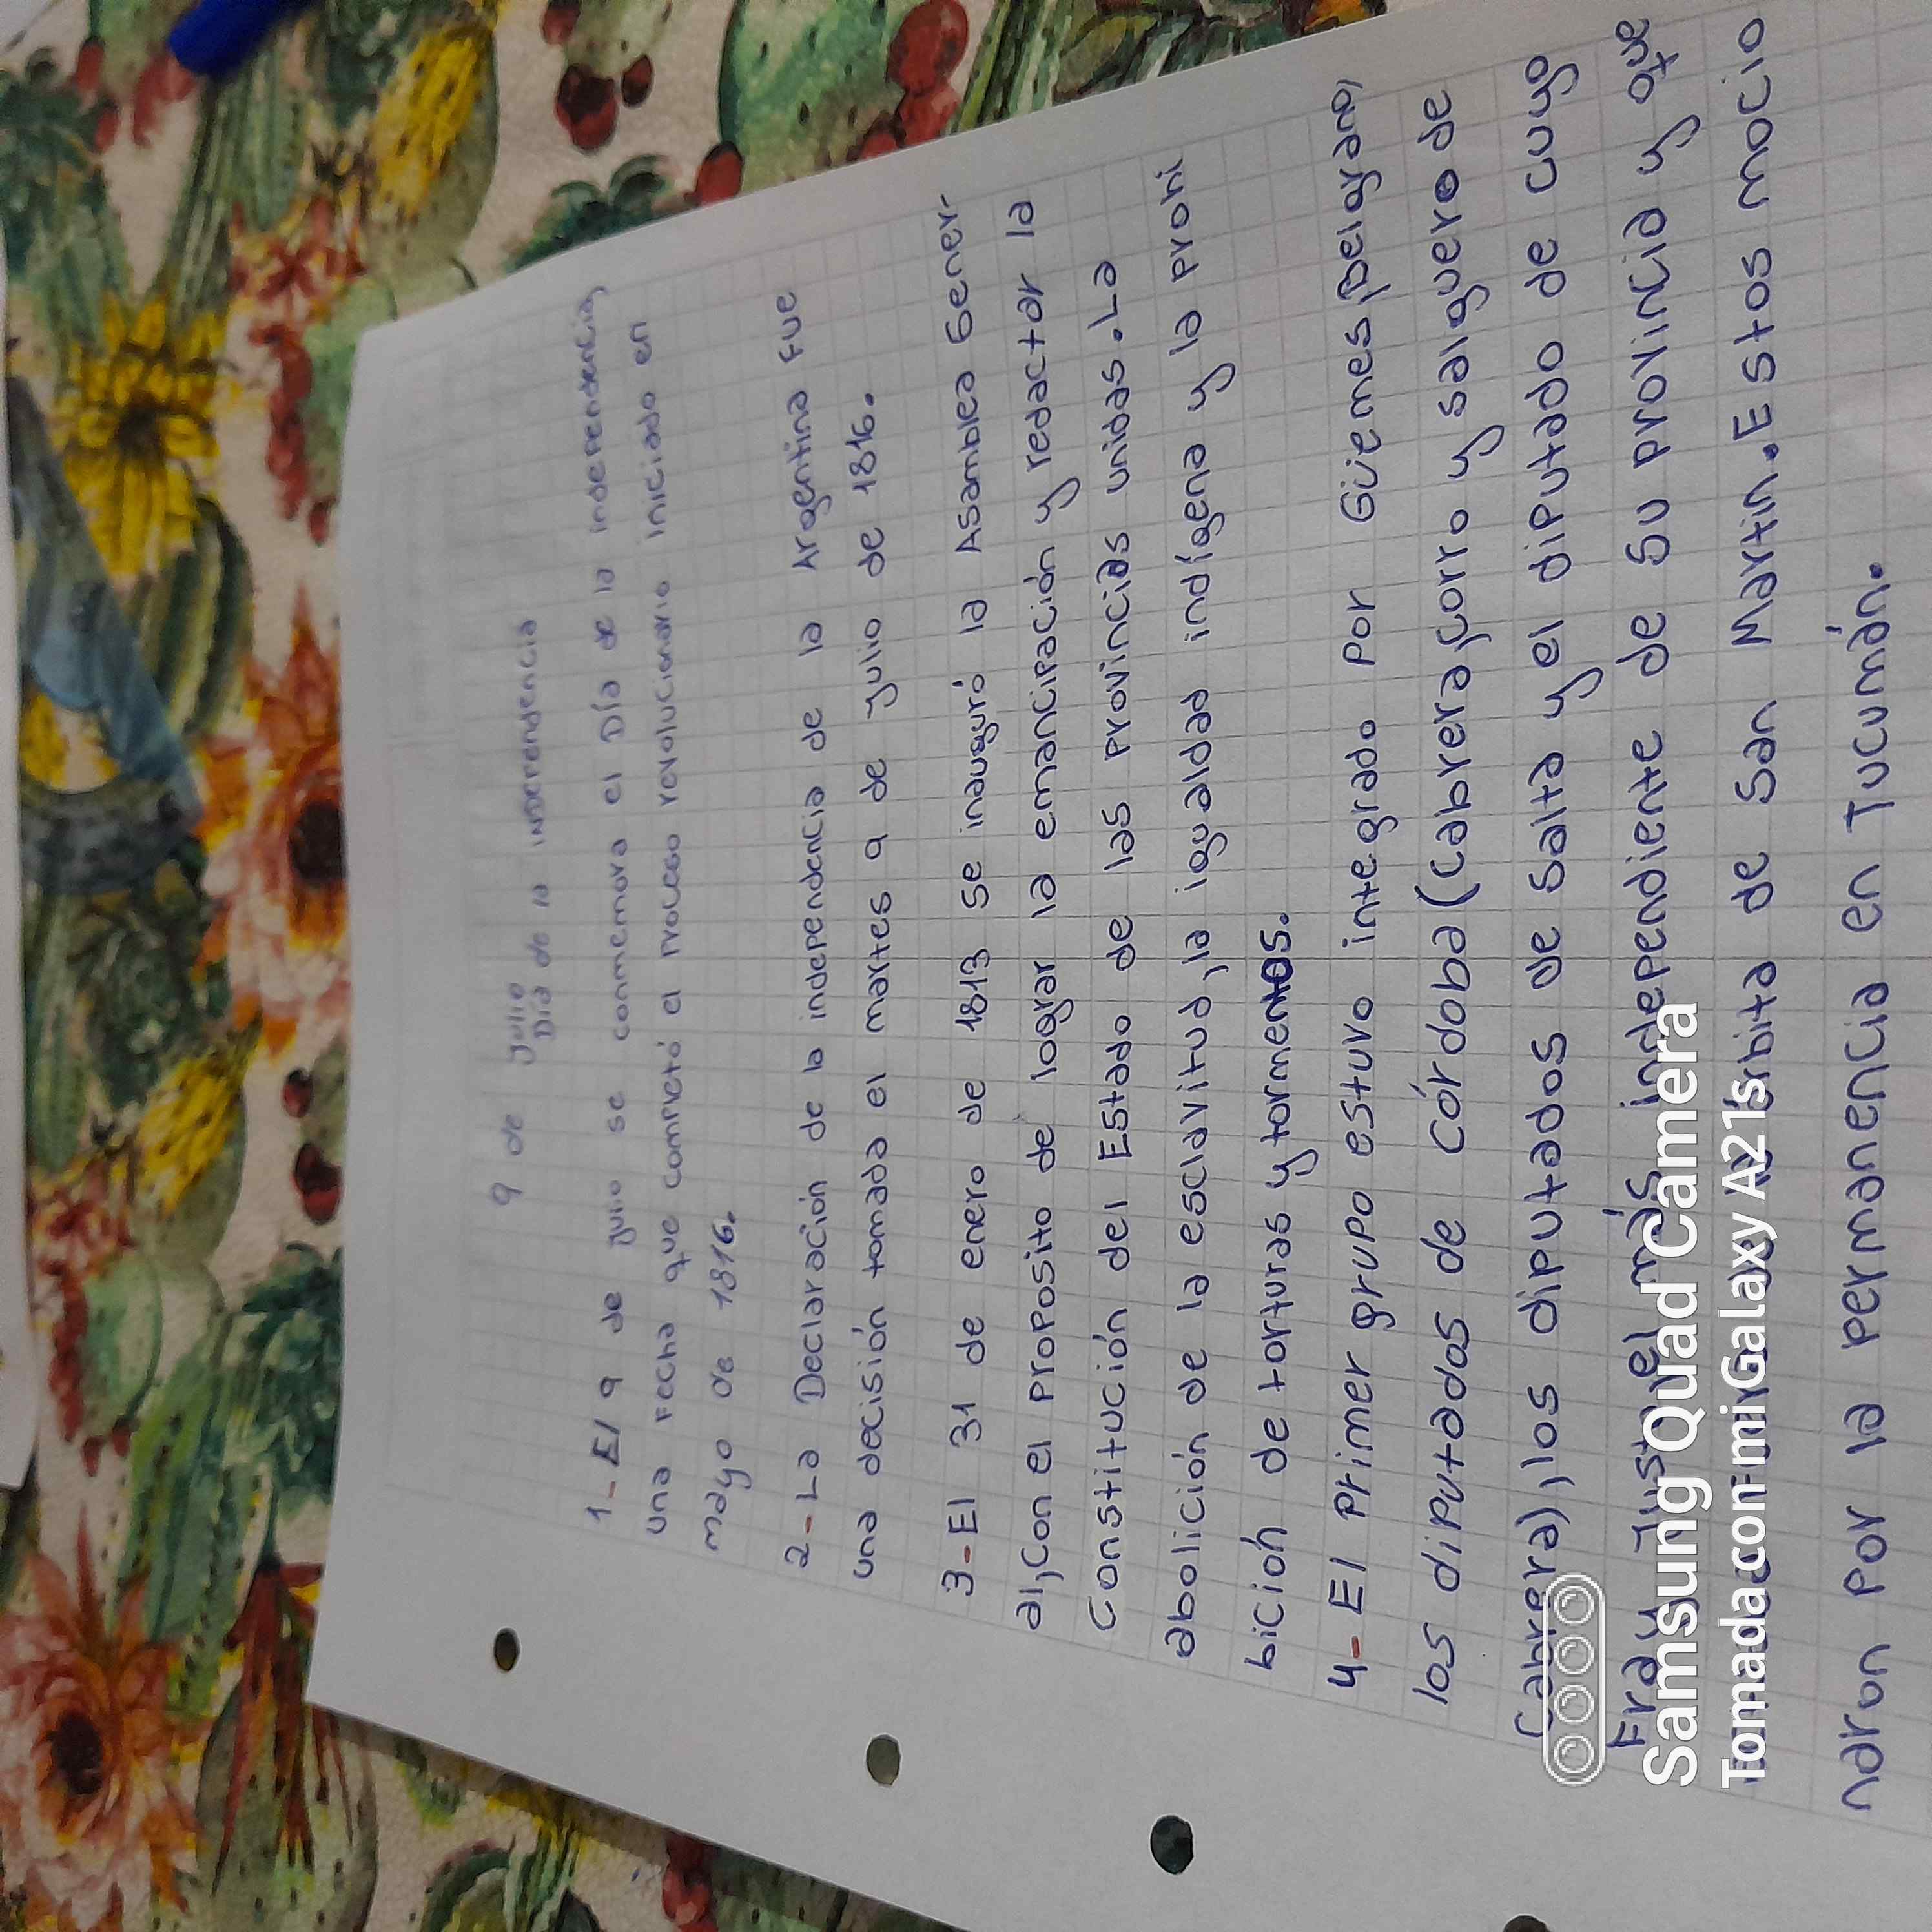 9 de Julio
Día de la independencia
1-El 9 de julio se conmemora el Día de la independencia,
una fecha que completó el proceso revolucionario iniciado en
mayo de 1816.
2-La Declaración de la independencia de la Argentina fue
una decisión tomada el martes 9 de julio de 1816.
3-El 31 de enero de 1813 se inauguró la Asamblea Gener-
al, con el proposito de lograr la emancipación y redactar la
Constitución del Estado de las provincias unidas. La
abolición de la esclavitud, la igualdad indígena y la prohi
bición de torturas y tormentos.
4-El primer grupo estuvo integrado por Güemes, Belgrano,
los diputados de Córdoba (Cabrera, Corro y salguero de
Cabrera), los diputados de Salta y el diputado de cuyo
Fray Justo el más independiente de su provincia y que
órbita de San Martin. Estos mocio
naron por la permanencia en Tucumán.
Samsung Quad Camera
Tomada con mi Galaxy A21s